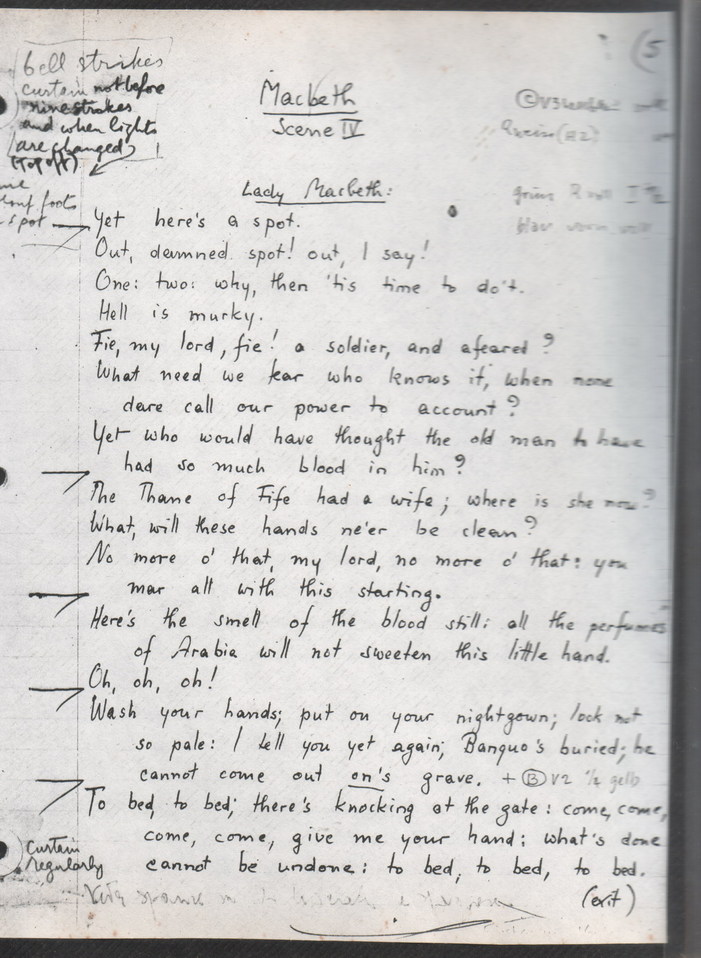 (5
bell strikes
curtain not before
nine strokes
and when lights
are changed
(top off)
Macbeth
Scene IV
Lady Macbeth:
spot
Yet here's a spot.
Out, damned spot! out, I say!
One: two: why, then 'tis time to do't.
Hell is murky.
Fie, my lord, fie! a soldier, and afeared?
What need we fear who knows it, when none
dare call our power to account?
Yet who would have thought the old man to have
had so much blood in him?
The Thane of Fife had a wife; where is she now?
What, will these hands ne'er be clean?
No more o' that, my lord, no more o' that: you
mar all with this starting.
Here's the smell of the blood still: all the perfumes
of Arabia will not sweeten this little hand.
Oh, oh, oh!
Wash your hands; put on your nightgown; look not
so pale: I tell you yet again, Banquo's buried; he
cannot come out on's grave. + Ⓑ V2 ½ gelb
To bed, to bed; there's knocking at the gate: come, come,
come, come, give me your hand: what's done
cannot be undone: to bed, to bed, to bed.
curtain
regularly
(exit)